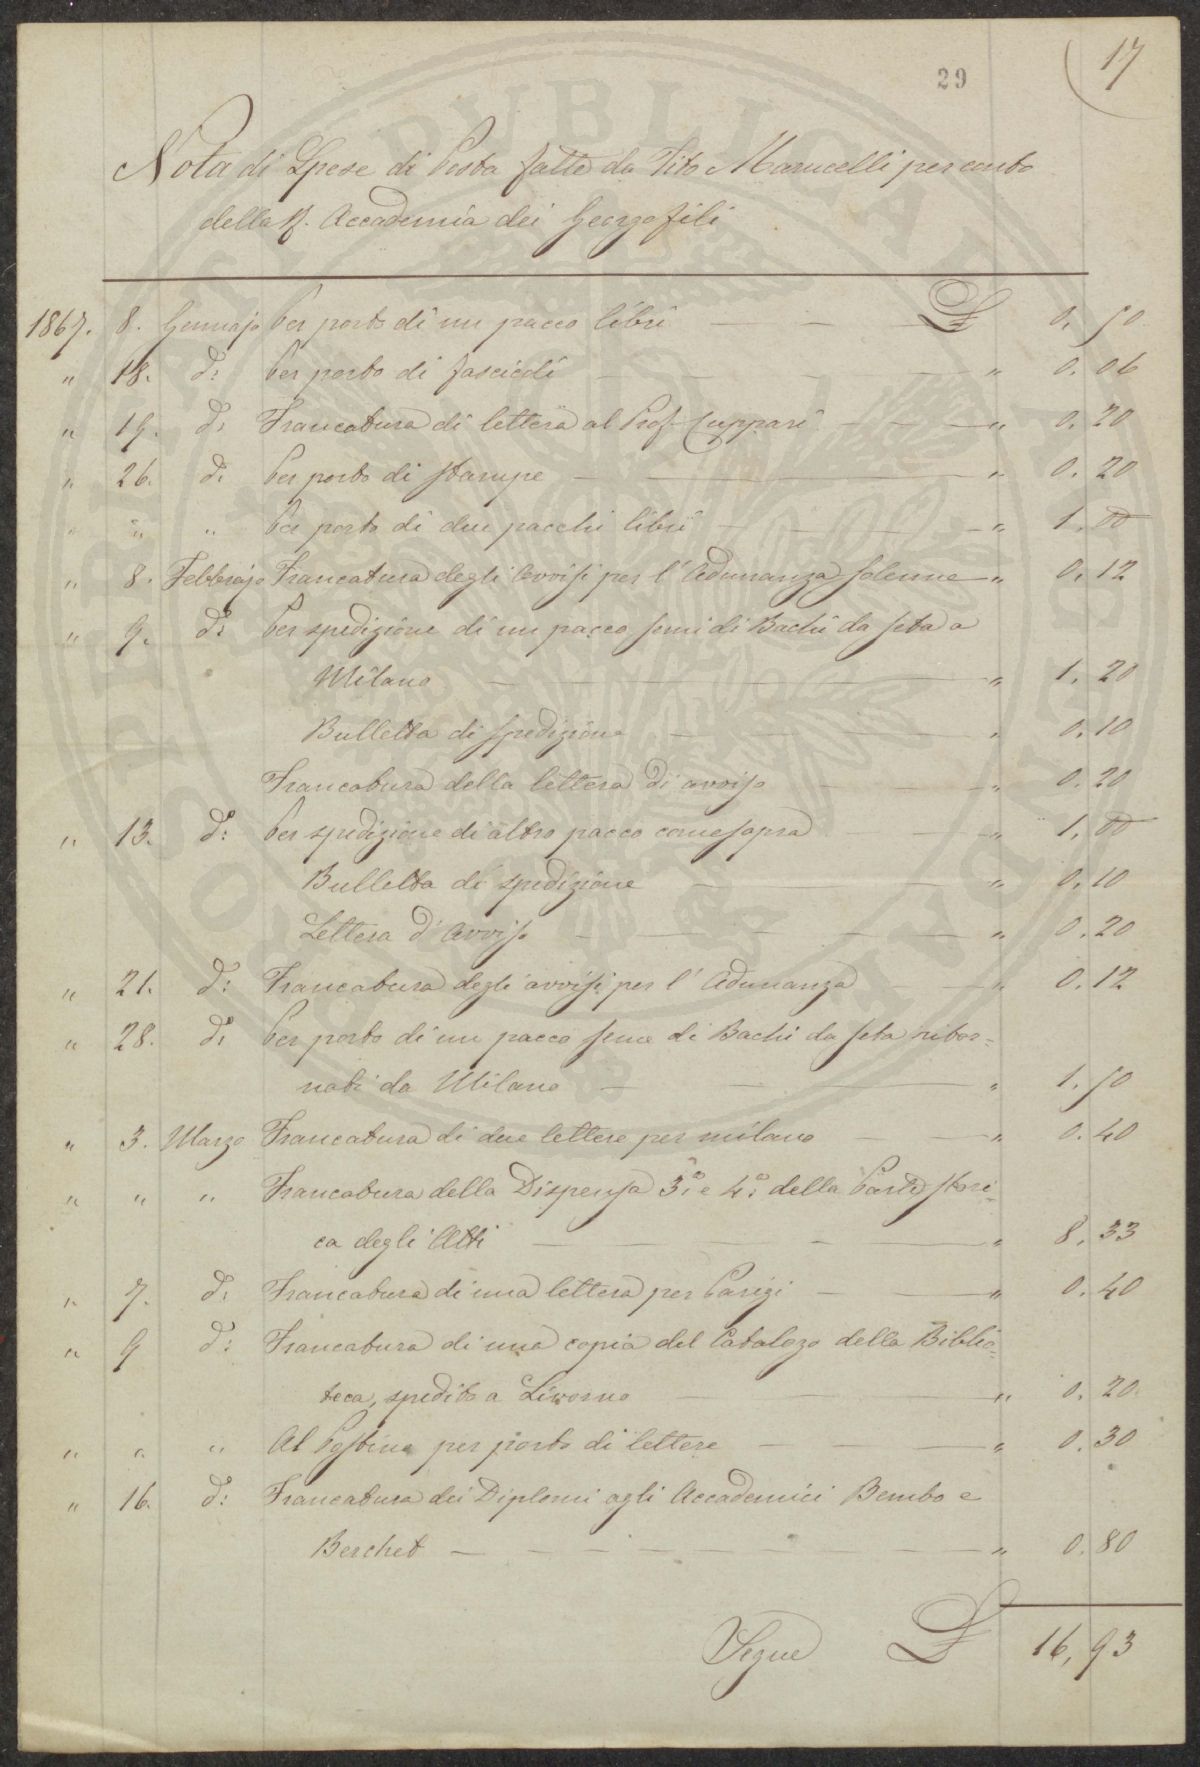 17
29
Nota di Spese di Posta fatte da Tito Marucelli per conto
della R. Accademia dei Georgofili
1867. 8. Gennajo Per porto di un pacco libri — — — L 0. 50
" 18. d: Per porto di fascicoli — — — " 0. 06
" 19. d: Francatura di lettera al Prof. Cuppari — — — " 0. 20
" 26. d: Per porto di stampe — — — " 0. 20
" " " Per porto di due pacchi libri — — — " 1. 00
" 8. Febbrajo Francatura degli Avvisi per l'Adunanza solenne — " 0. 12
" 9. d: Per spedizione di un pacco semi di Bachi da seta a
Milano — — — " 1. 20
Bulletta di spedizione — — — " 0. 10
Francatura della lettera di avviso — — — " 0. 20
" 13. d: Per spedizione di altro pacco come sopra — — " 1. 00
Bulletta di spedizione — — — " 0. 10
Lettera d'Avviso — — — " 0. 20
" 21. d: Francatura degli avvisi per l'Adunanza — — " 0. 12
" 28. d: Per porto di un pacco seme di Bachi da seta ritor=
nati da Milano — — — " 1. 50
" 3. Marzo Francatura di due lettere per milano — — " 0. 40
" " " Francatura della Dispensa 3.ª e 4.ª della Parte stori=
ca degli Atti — — — " 8. 33
" 7. d: Francatura di una lettera per Parigi — — " 0. 40
" 9 d: Francatura di una copia del Catalogo della Biblio=
teca, spedito a Livorno — — — " 0. 20
" " " Al Postino per porto di lettere — — — " 0. 30
" 16. d: Francatura dei Diplomi agli Accademici Bembo e
Berchet — — — " 0. 80
Segue L 16, 93